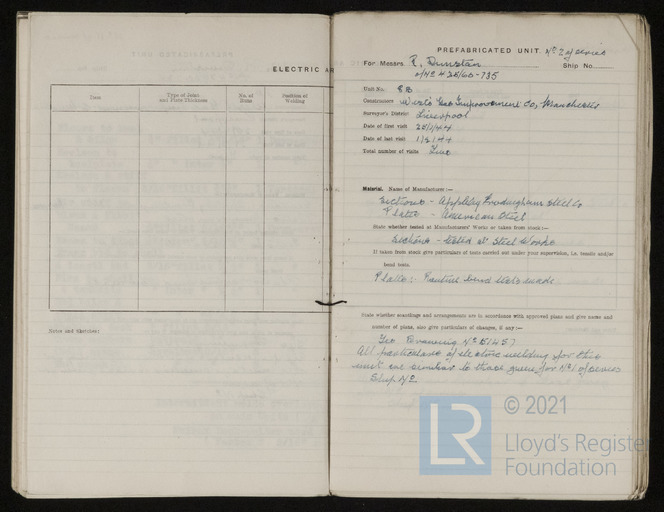 ELECTRIC AR
Item
Type of Joint and Plate Thickness
No. of Runs
Position of Welding
Notes and Sketches:
PREFABRICATED UNIT. No 2 of series
For Messrs. R. Dunston Ship No.
Unit No. 8B
Constructors West's Gas Improvement Co, Manchester
Surveyor's District Liverpool
Date of first visit 25/1/44
Date of last visit 1/2/44
Total number of visits
Material. Name of Manufacturer :—
Sections - Appleby Frodingham Steel Co
Plates - American Steel
State whether tested at Manufacturers' Works or taken from stock:—
Sections - tested at Steel Works
If taken from stock give particulars of tests carried out under your supervision, i.e. tensile and/or
bend tests.
Plates:- Routine bend tests made
State whether scantlings and arrangements are in accordance with approved plans and give name and
number of plans, also give particulars of changes, if any :—
Drawing No
All particulars of electric welding for this
unit are similar to those given for No 1 of series
Ship No.
LR
© 2021
Lloyd's Register
Foundation